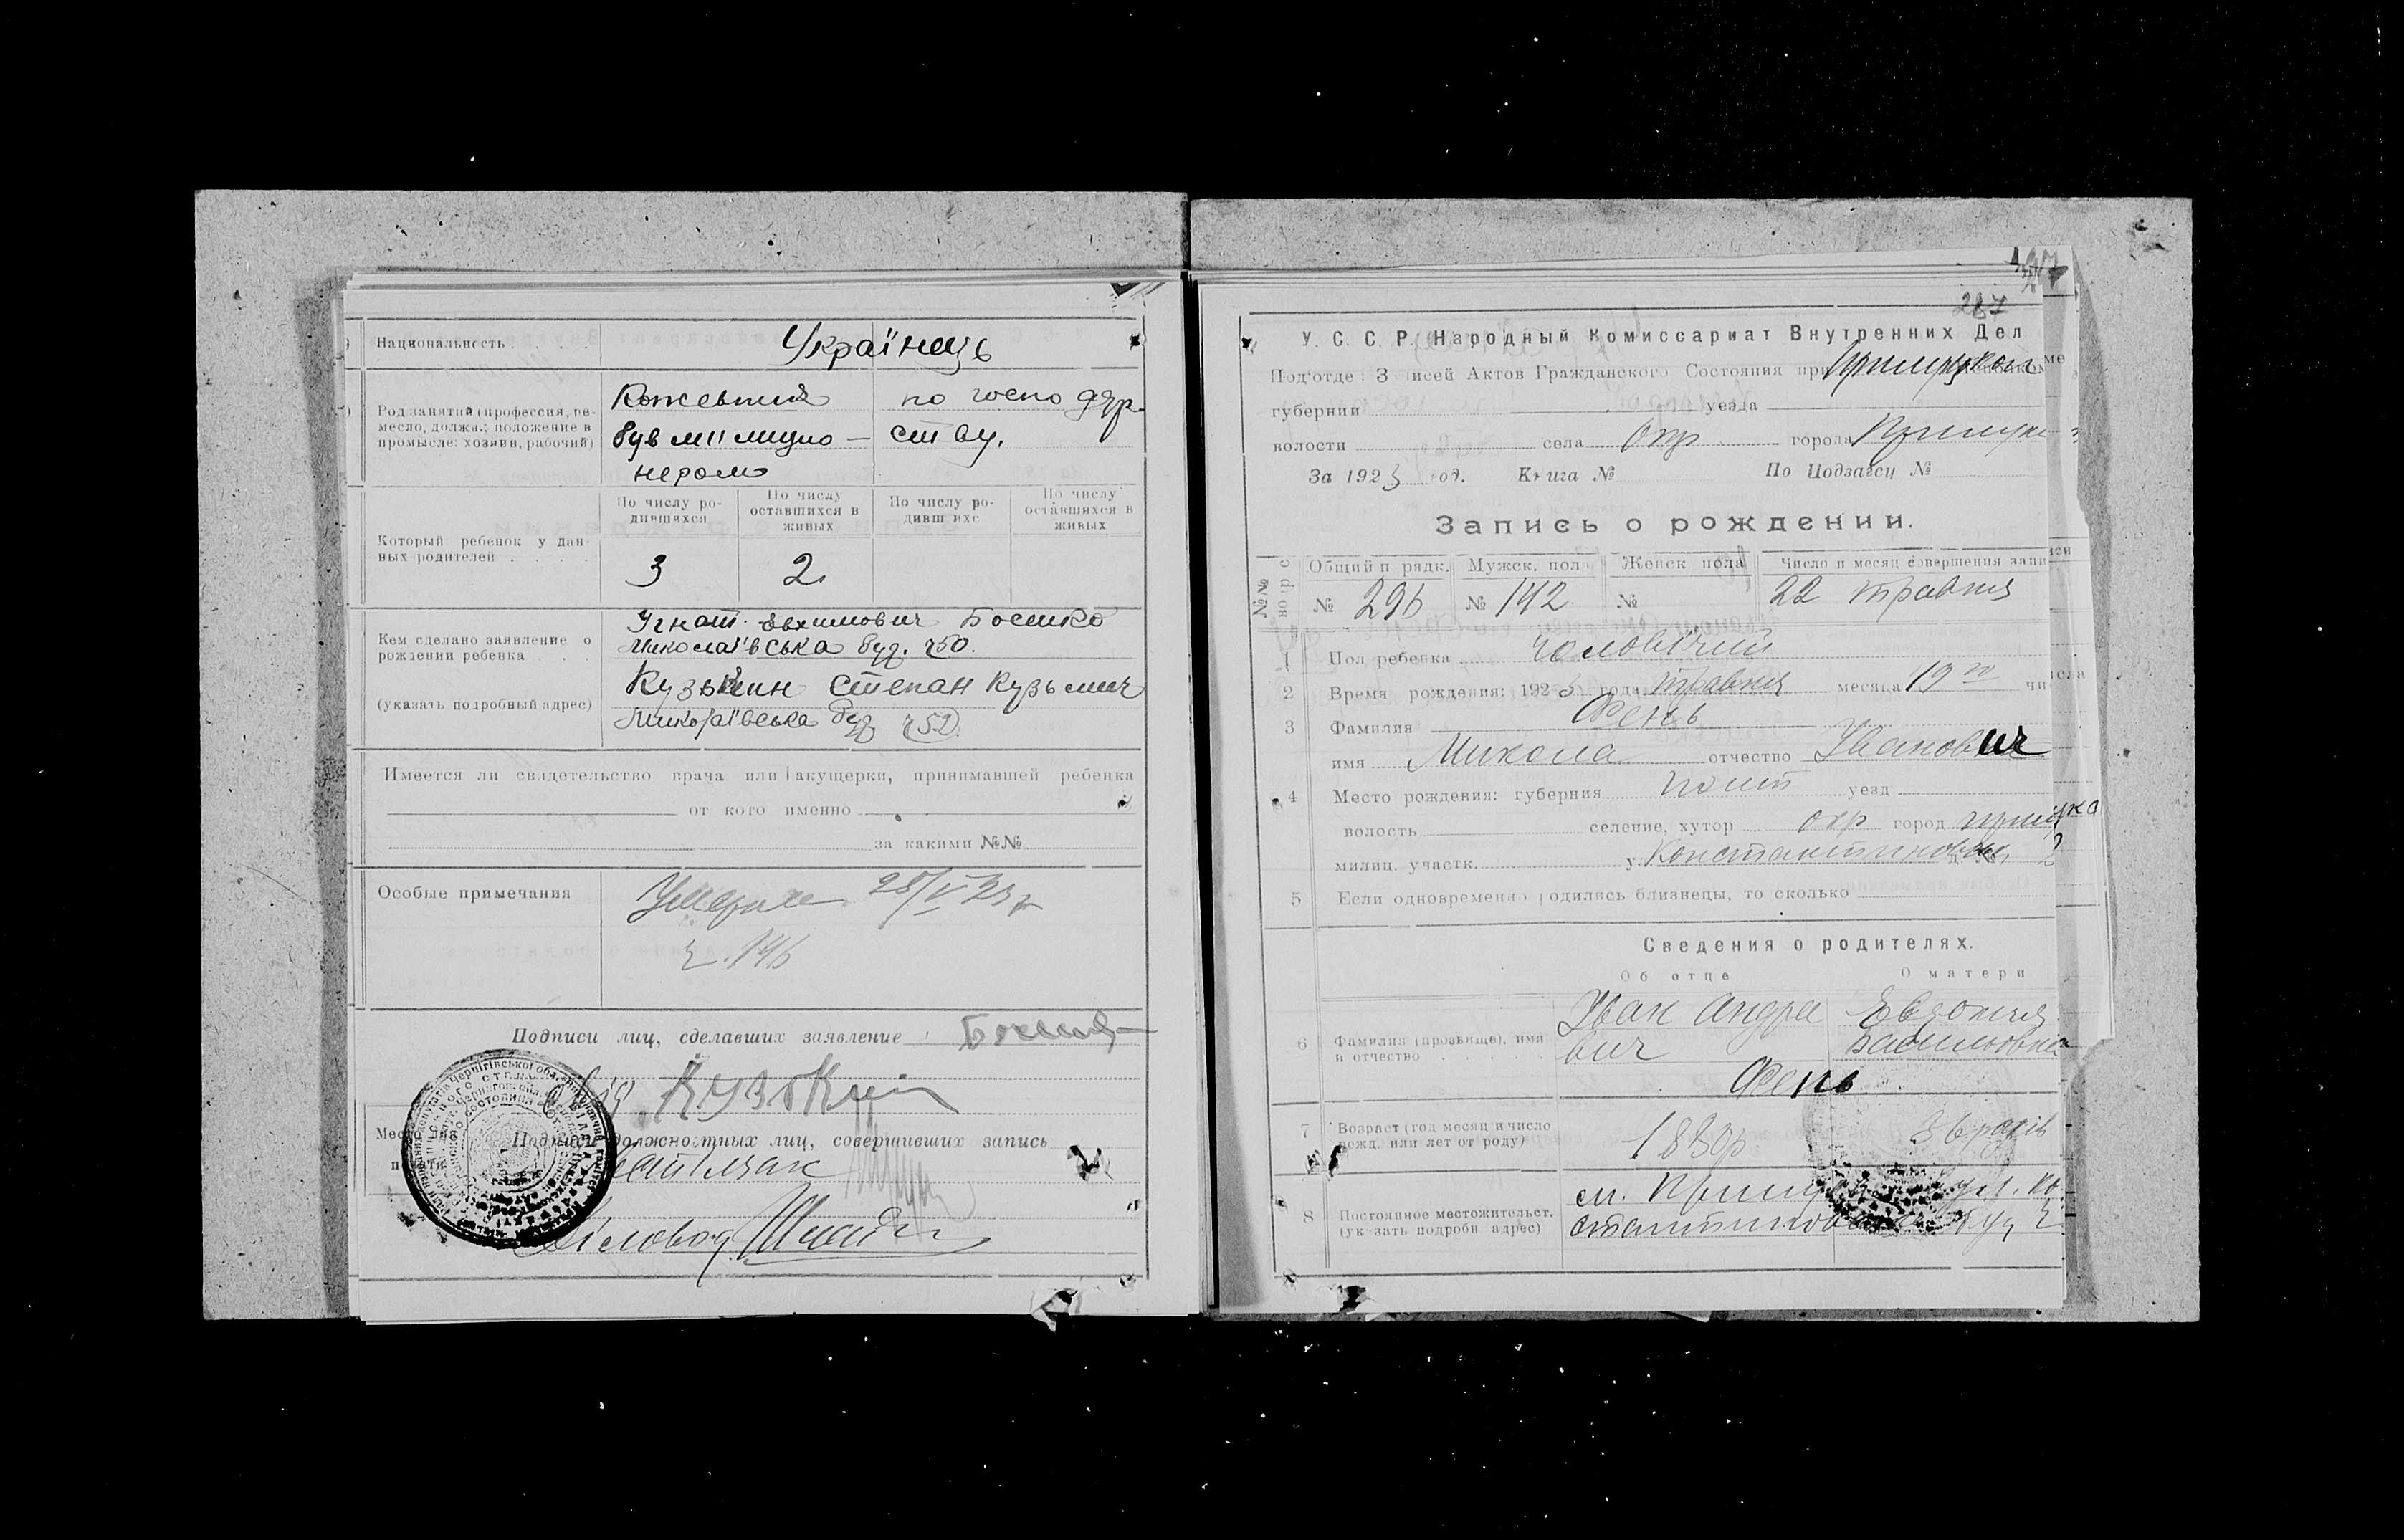 Национальность
Українець
Род занятий (профессия, ре-
месло, должн.; положение в
промысле: хозяин, рабочий)
Кожевник
був міліцио-
нером
по госпо дар
ству.
Который ребенок у дан-
ных родителей
По числу ро-
дившихся
По числу
оставшихся в
живых
По числу ро-
дивш ихс
По числу
оставшихся в
живых
3 2
Кем сделано заявление о
рождении ребенка
(указать подробный адрес)
Игнат Евхимович Бошко
Миколаївська буд. ч50.
Кузькин Степан Кузьмич
Миколаївська буд ч52
Имеется ли свидетельство врача или акушерки, принимавшей ребенка
от кого именно
за какими №№
Особые примечания
Умерла 28/V 23 г
ч. 146
Подписи лиц, сделавших заявление
Кузькин
Подписи должностных лиц, совершивших запись
Діловод
287
У. С. С. Р. Народный Комиссариат Внутренних Дел
Подотде Записей Актов Гражданского Состояния при Прилуцком
губернии уезда
волости села Окр города Прилуки
За 1923 год. Книга № По Подзагсу №
Запись о рождении.
Общий п рядк. Мужск. пол Женск пола Число и месяц совершения запи
№ 296 № 142 № 22 травня
1 Пол ребенка чоловічий
2 Время рождения: 1923 года травня месяца 19го чи
3 Фамилия Фень
имя Микола отчество Іванович
4 Место рождения: губерния полт уезд
волость селение, хутор окр город прилука
милиц. участк. у. Константиновска 2
5 Если одновременно родились близнецы, то сколько
Сведения о родителях.
Об отце О матери
6 Фамилия (прозвище), имя
и отчество
Іван Андре
вич
Евдокия
Васильовна
Фень
7 Возраст (год месяц и число
рожд. или лет от роду)
1880р. 36 років
8 Постоянное местожительст.
(указать подробн адрес)
м. Прилуки ул. Ко
стантиновска буд ч